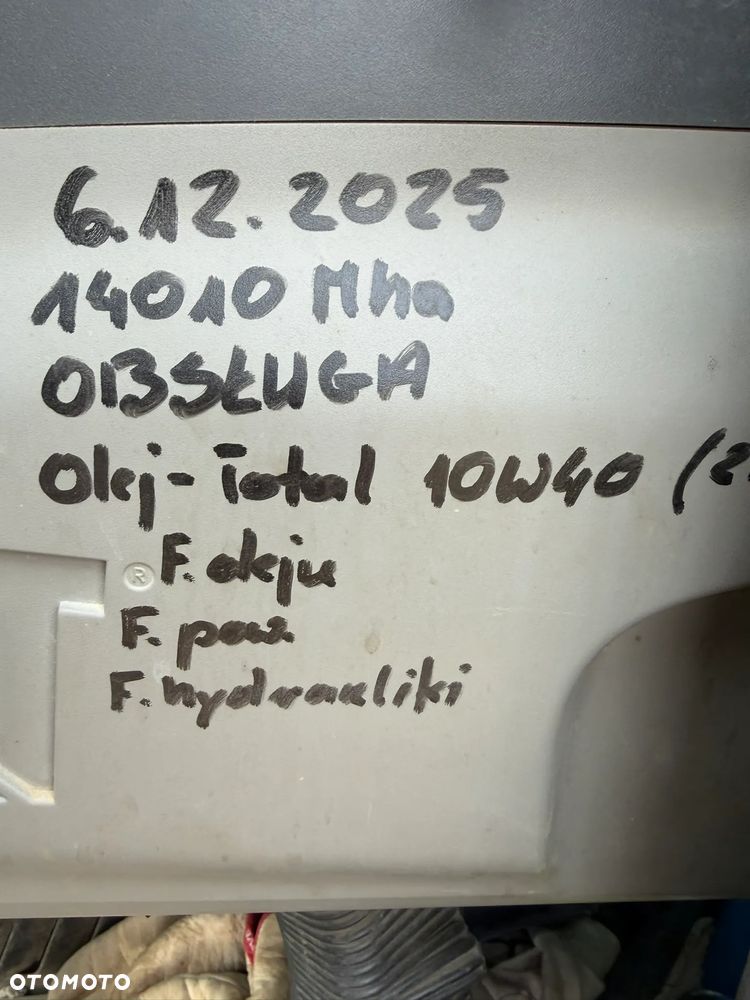 6.12.2025
14010 Mha
OBSŁUGA
Olej-Total 10W40 (2
F. oleju
®
F. pow.
F. hydrauliki
OTOMOTO